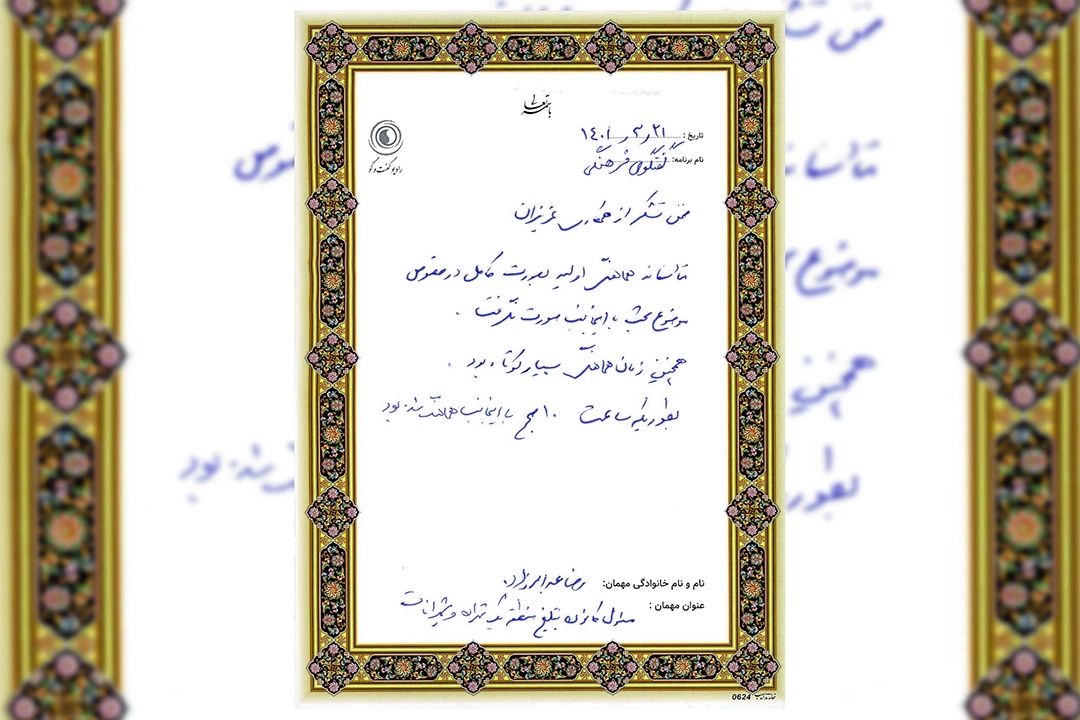 باسمه تعالی
رادیو گفت و گو
تاریخ: ۱۴۰۱/۳/۲۱
نام برنامه: گفتگوی فرهنگی
ضمن تشکر از همکاری عزیزان
متأسفانه هماهنگی اولیه بصورت کامل در خصوص
موضوع بحث با اینجانب صورت نگرفت.
همچنین زمان هماهنگی بسیار کوتاه بود.
بطوریکه ساعت ۱۰ صبح با اینجانب هماهنگ شده بود
نام و نام خانوادگی مهمان: رضا
عنوان مهمان: مسئول کانون تبلیغ منطقه یک تهران و شمیرانات
0624